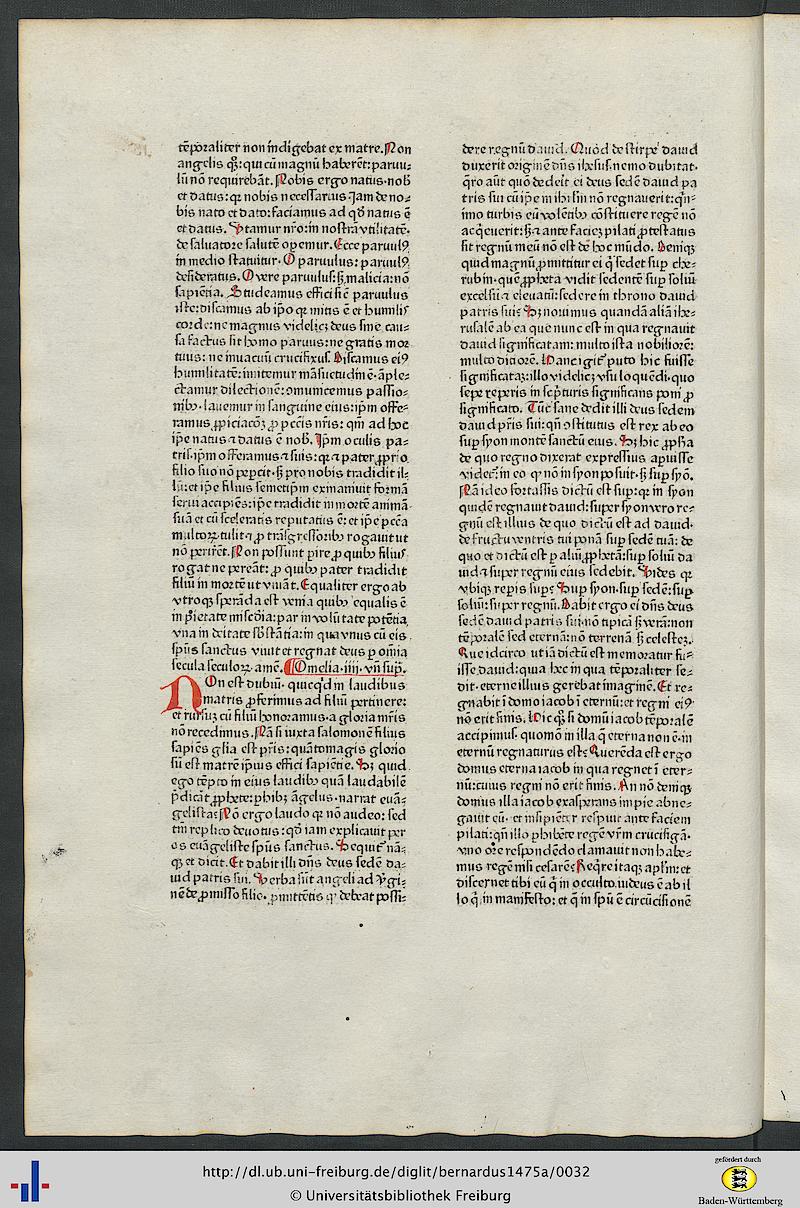 tēporaliter non indigebat ex matre. Non
angelis qȝ: qui cū magnū haberēt: paruu-
lū nō requirebāt. Nobis ergo natus· nob̄
et datus: qꝛ nobis necessarius Jam de no-
bis nato et dato: faciamus ad qd̄ natus ē
et datus. Utamur nr̄o: in nostrā vtilitatē·
de saluatore salutē oꝑemur. Ecce paruulꝰ
in medio statuitur. O paruulus: paruulꝰ
desideratus. O vere paruulus: sȝ malicia: nō
sapiētia. Studeamus effici sic̄ paruulus
iste: discamus ab ip̄o qꝛ mitis ē et humilis
corde: ne magnus videlicȝ deus sine cau-
sa factus sit homo paruus: ne gratis mor
tuus: ne in uacuū crucifixus. Discamus eiꝰ
humilitatē: imitemur māsuetudinē· āple-
ctamur dilectionē: cōmunicemus passio-
nibꝰ· lauemur in sanguine eius: ip̄m offe-
ramus ꝓpiciacōȝ ꝓ pctīs nr̄is: qm̄ ad hoc
ip̄e natus ⁊ datus ē nob̄. Ip̄m oculis pa-
tris· ip̄m offeramus ⁊ suis: qꝛ ⁊ pater ꝓprio
filio suo nō peꝑcit· sȝ pro nobis tradidit il-
lū: et ip̄e filius semetip̄m exinaniuit formā
serui accipiēs: ip̄e tradidit in mortē animā
suā et cū sceleratis reputatus ē: et ip̄e pctā
multoꝝ tulit ⁊ ꝓ trāsgressoribꝰ rogauit ut
nō perirēt. Non possunt ꝑire ꝓ quibꝰ filius
rogat ne pereāt: ꝓ quibꝰ pater tradidit
filiū in mortē ut viuāt. Equaliter ergo ab
vtroqȝ sperāda est venia quibꝰ equalis ē
in pietate misc̄dia: par in volūtate potētia
vna in deitate sb̄stātia: in qua vnus cū eis
spūs sanctus viuit et regnat deus ꝑ om̄ia
secula seculoꝝ. amē. Omelia· iiij· vn̄ suꝑ.
NOn est dubiū· quicqd̄ in laudibus
matris ꝓferimus ad filiū pertinere:
et rursuȝ cū filiū honoramus· a gloria mr̄is
nō recedimus. Nā si iuxta salomonē filius
sapiēs gl̄ia est pr̄is: quātomagis glorio
sū est matrē ip̄ius effici sapiētie. Sȝ quid
ego tēpto in eius laudibꝰ quā laudabilē
p̄dicāt ꝓphete: ꝑhibȝ āgelus· narrat euā-
gelista? Nō ergo laudo qꝛ nō audeo: sed
tm̄ replico deuotus: qd̄ iam explicauit per
os euāgeliste spūs sanctus. Sequit᷑ nā-
qȝ et dicit. Et dabit illi dn̄s deus sedē da-
uid patris sui. Verba sūt angeli ad v̓gi-
nē de ꝓmisso filio· ꝓmittētis qꝙ debeat possi-
dere regnū dauid. Quod de stirpe dauid
duxerit originē dn̄s ihesus· nemo dubitat·
Qro aūt quō dedeit ei deus sedē dauid pa
tris sui cū ip̄e in ihrl̄m nō regnauerit: qn̄-
imo turbis eū volētibꝰ cōstituere regē nō
acq̓euerit: sȝ ⁊ ante faciēȝ pilati ꝓtestatus
sit regnū meū nō est de hoc mūdo. Deniqȝ
quid magnū ꝓmittitur ei q̓ sedet suꝑ che-
rubin· quē ꝓpheta vidit sedentē suꝑ soliū
excelsū ⁊ eleuatū: sedere in throno dauid
patris sui? Sȝ nouimus quandā aliā ihe-
rusalē ab ea que nunc est in qua regnauit
dauid significatam: multo ista nobiliorē:
multo ditiorē. Hanc igit᷑ puto hic fuisse
significataȝ: illo videlicȝ vsu loquēdi· quo
sepe reperis in sc̄pturis significans poni ꝓ
significato. Tūc sane dedit illi deus sedem
dauid pr̄is sui: qn̄ ꝯstitutus est rex ab eo
suꝑ syon montē sanctū eius. Sȝ hic ꝓpha
de quo regno dixerat expressius aꝑuisse
videt᷑: in eo qꝙ nō in syon posuit· sȝ suꝑ syō.
Nā ideo fortassis dictū est suꝑ: qꝛ in syon
quidē regnauit dauid: super syon vero re-
gnū est illius de quo dictū est ad dauid·
de fructu ventris tui ponā suꝑ sedē tuā: de
quo et dictū est ꝑ aliū ꝓphetā: suꝑ soliū da
uid ⁊ super regnū eius sedebit. Vides qꝛ
vbiqȝ reꝑis suꝑ? Suꝑ syon· suꝑ sedē: suꝑ
soliū: super regnū. Dabit ergo ei dn̄s deus
sedē dauid patris sui: nō tipicā sȝ verā: non
tēporalē sed eternā: nō terrenā sȝ celestēȝ.
Que idcirco ut iā dictū est memoratur fu-
isse dauid: quia hec in qua tēporaliter se-
dit· eterne illius gerebat imaginē. Et re-
gnabit ī domo iacob ī eternū: et regni eiꝰ
nō erit finis. Hic qȝ si domū iacob tēporalē
accipimus· quomō in illa q̄ eterna non ē· in
eternū regnaturus est? Querēda est ergo
domus eterna iacob in qua regnet ī eter-
nū: cuius regni nō erit finis. An nō deniqȝ
domus illa iacob exasperans impie abne-
gauit eū· et insipiēter respuit ante faciem
pilati: qn̄ illo ꝑhibēte regē vr̄m crucifigā·
vno or̄e respondēdo clamauit non habe-
mus regē nisi cesarē? Req̓re itaqȝ apl̄m: et
discernet tibi eū q̓ in occulto iudeus ē ab il
lo q̓ in manifesto: et q̄ in spū ē circūcisionē
http://dl.ub.uni-freiburg.de/diglit/bernardus1475a/0032
© Universitätsbibliothek Freiburg
gefördert durch
Baden-Württemberg